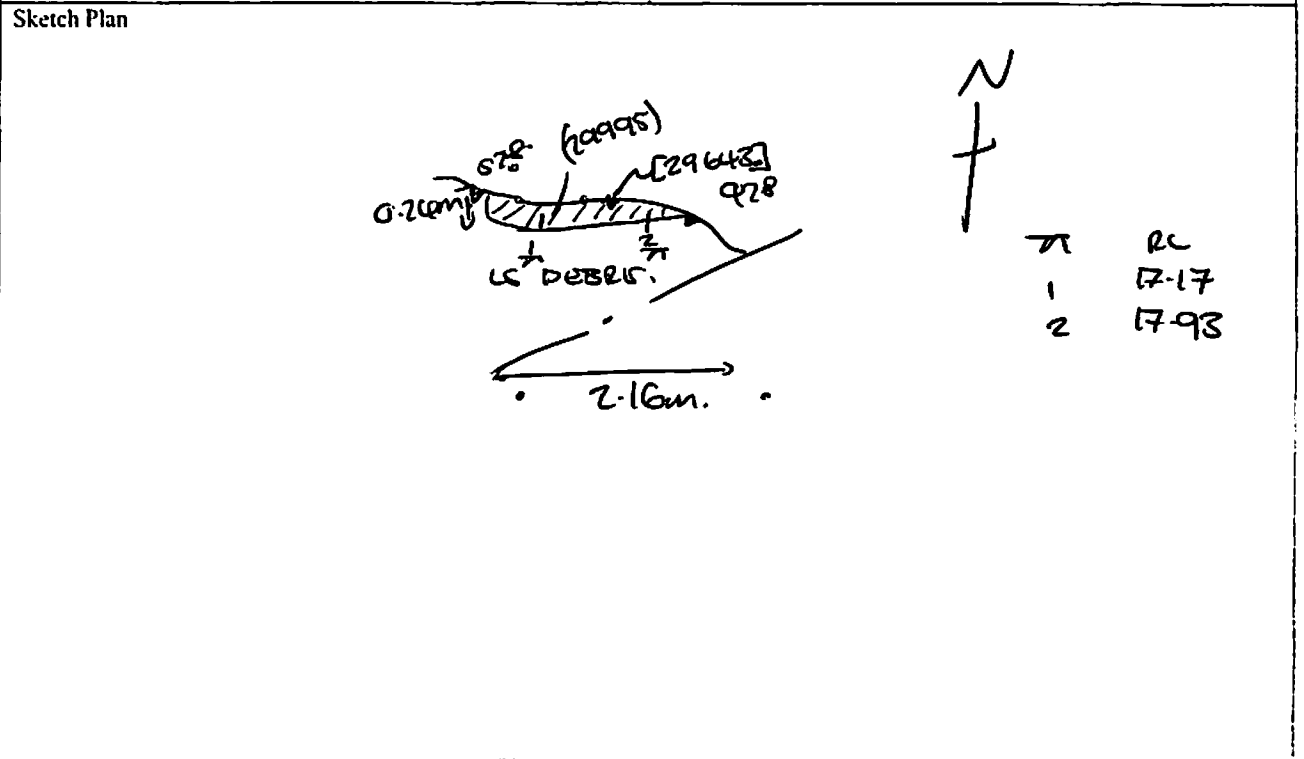 Sketch Plan
N
(29995)
[29643]
928
0.26m
1
2
LS DEBRIS.
2.16m.
⊼ RL
1 17.17
2 17.93